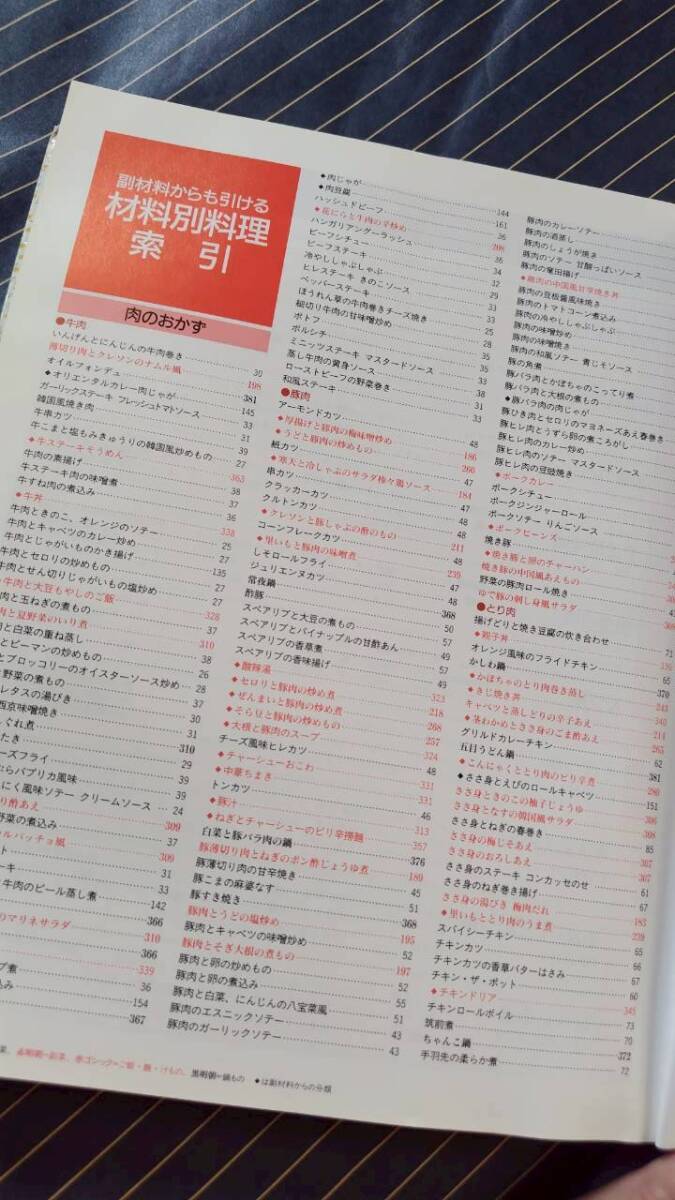 副材料からも引ける
材料別料理
索引
肉のおかず
●牛肉
いんげんとにんじんの牛肉巻き 30
薄切り肉とクレソンのナムル風 198
オイルフォンデュ 381
◆オリエンタルカレー肉じゃが 145
ガーリックステーキ フレッシュトマトソース 33
韓国風焼き肉 31
牛串カツ 39
牛こまと塩もみきゅうりの韓国風炒めもの 27
◆牛ステーキそうめん 363
牛肉の素揚げ 38
牛ステーキ肉の味噌煮 37
牛すね肉の煮込み 36
◆牛丼 338
牛肉ときのこ、オレンジのソテー 25
牛肉とキャベツのカレー炒め 27
牛肉とじゃがいものかき揚げ 135
牛肉とセロリの炒めもの 27
牛肉とせん切りじゃがいもの塩炒め
牛肉と大豆もやしのご飯 328
肉と玉ねぎの煮もの 37
肉と夏野菜のいり煮 310
と白菜の重ね蒸し 38
とピーマンの炒めもの 26
とブロッコリーのオイスターソース炒め 28
野菜の煮もの 37
レタスの湯びき 30
西京味噌焼き 31
しぐれ煮 310
たき 29
ーズフライ 39
ぷらパプリカ風味 39
にく風味ソテー クリームソース 24
り酢あえ 309
野菜の煮込み 37
ルパッチョ風 309
ト 31
ーキ 33
牛肉のビール蒸し煮 142
366
のマリネサラダ 310
366
339
プ煮 36
込み 154
367
◆肉じゃが 144
◆肉豆腐 161
ハッシュドビーフ 36
◆花にらと牛肉の辛炒め 208
ハンガリアングーラッシュ 36
ビーフシチュー 34
ビーフステーキ 32
冷やししゃぶしゃぶ 29
ヒレステーキ きのこソース 33
ペッパーステーキ 33
ほうれん草の牛肉巻きチーズ焼き 25
細切り牛肉の甘味噌炒め 28
ポトフ 35
ボルシチ 35
ミニッツステーキ マスタードソース 33
蒸し牛肉の黄身ソース 38
ローストビーフの野菜巻き 31
和風ステーキ 33
●豚肉
アーモンドカツ 48
◆厚揚げと豚肉の梅味噌炒め 186
◆うどと豚肉の炒めもの 200
紙カツ 47
◆寒天と冷しゃぶのサラダ棒々鶏ソース 184
串カツ 47
クラッカーカツ 48
クルトンカツ 48
◆クレソンと豚しゃぶの酢のもの 211
コーンフレークカツ 48
◆里いもと豚肉の味噌煮 239
しそロールフライ 47
ジュリエンヌカツ 48
常夜鍋 368
酢豚 50
スペアリブと大豆の煮もの 57
スペアリブとパイナップルの甘酢あん 49
スペアリブの香草煮 57
スペアリブの香味揚げ 49
◆酸辣湯 323
◆セロリと豚肉の炒め煮 218
◆ぜんまいと豚肉の炒め煮 268
◆そら豆と豚肉の炒めもの 257
◆大根と豚肉のスープ 324
チーズ風味ヒレカツ 48
◆チャーシューおこわ 331
◆中華ちまき 331
トンカツ 46
◆豚汁 313
◆ねぎとチャーシューのピリ辛拌麺 357
白菜と豚バラ肉の鍋 376
豚薄切り肉とねぎのポン酢じょうゆ煮 189
豚薄切り肉の甘辛焼き 45
豚こまの麻婆なす 51
豚すき焼き 368
豚肉とうどの塩炒め 195
豚肉とキャベツの味噌炒め 52
豚肉とそぎ大根の煮もの 197
豚肉と卵の炒めもの 52
豚肉と卵の煮込み 55
豚肉と白菜、にんじんの八宝菜風 51
豚肉のエスニックソテー 43
豚肉のガーリックソテー 43
豚肉のカレーソテー
豚肉の酒蒸し
豚肉のしょうが焼き
豚肉のソテー 甘酸っぱいソース
豚肉の竜田揚げ
◆豚肉の中国風甘辛焼き丼
豚肉の豆板醤風味焼き
豚肉のトマトコーン煮込み
豚肉の冷やししゃぶしゃぶ
豚肉の味噌炒め
豚肉の味噌焼き
豚肉の和風ソテー 青じそソース
豚の角煮
豚バラ肉とかぼちゃのこってり煮
豚バラ肉と大根の煮もの
◆豚バラ肉の肉じゃが
豚ひき肉とセロリのマヨネーズあえ春巻き
豚ヒレ肉とうずら卵の煮ころがし
豚ヒレ肉のカレー炒め
豚ヒレ肉のソテー マスタードソース
豚ヒレ肉の豆豉焼き
◆ポークカレー
ポークシチュー
ポークジンジャーロール
ポークソテー りんごソース
◆ポークビーンズ
焼き豚
◆焼き豚と卵のチャーハン
焼き豚の中国風あえもの
野菜の豚肉ロール焼き
ゆで豚の刺し身風サラダ
●とり肉
揚げどりと焼き豆腐の炊き合わせ 71
◆親子丼
オレンジ風味のフライドチキン 65
かしわ鍋 370
◆かぼちゃのとり肉巻き蒸し 243
◆きじ焼き丼 340
キャベツと蒸しどりの辛子あえ 214
◆茎わかめとささ身のごま酢あえ 265
グリルドカレーチキン 62
五目うどん鍋 381
◆こんにゃくととり肉のピリ辛煮 280
◆ささ身とえびのロールキャベツ 151
ささ身ときのこの柚子じょうゆ 306
ささ身となすの韓国風サラダ 308
ささ身とねぎの春巻き 85
ささ身の梅じそあえ 307
ささ身のおろしあえ 307
ささ身のステーキ コンカッセのせ 61
ささ身のねぎ巻き揚げ 67
ささ身の湯びき 梅肉だれ 185
◆里いもととり肉のうま煮 239
スパイシーチキン 65
チキンカツ 66
チキンカツの香草バターはさみ 67
チキン・ザ・ポット 60
◆チキンドリア 345
チキンロールボイル 73
筑前煮 70
ちゃんこ鍋 372
手羽先の柔らか煮 72
菜、赤明朝=副菜、赤ゴシック=ご飯・麺・汁もの、黒明朝=鍋もの ◆は副材料からの分類